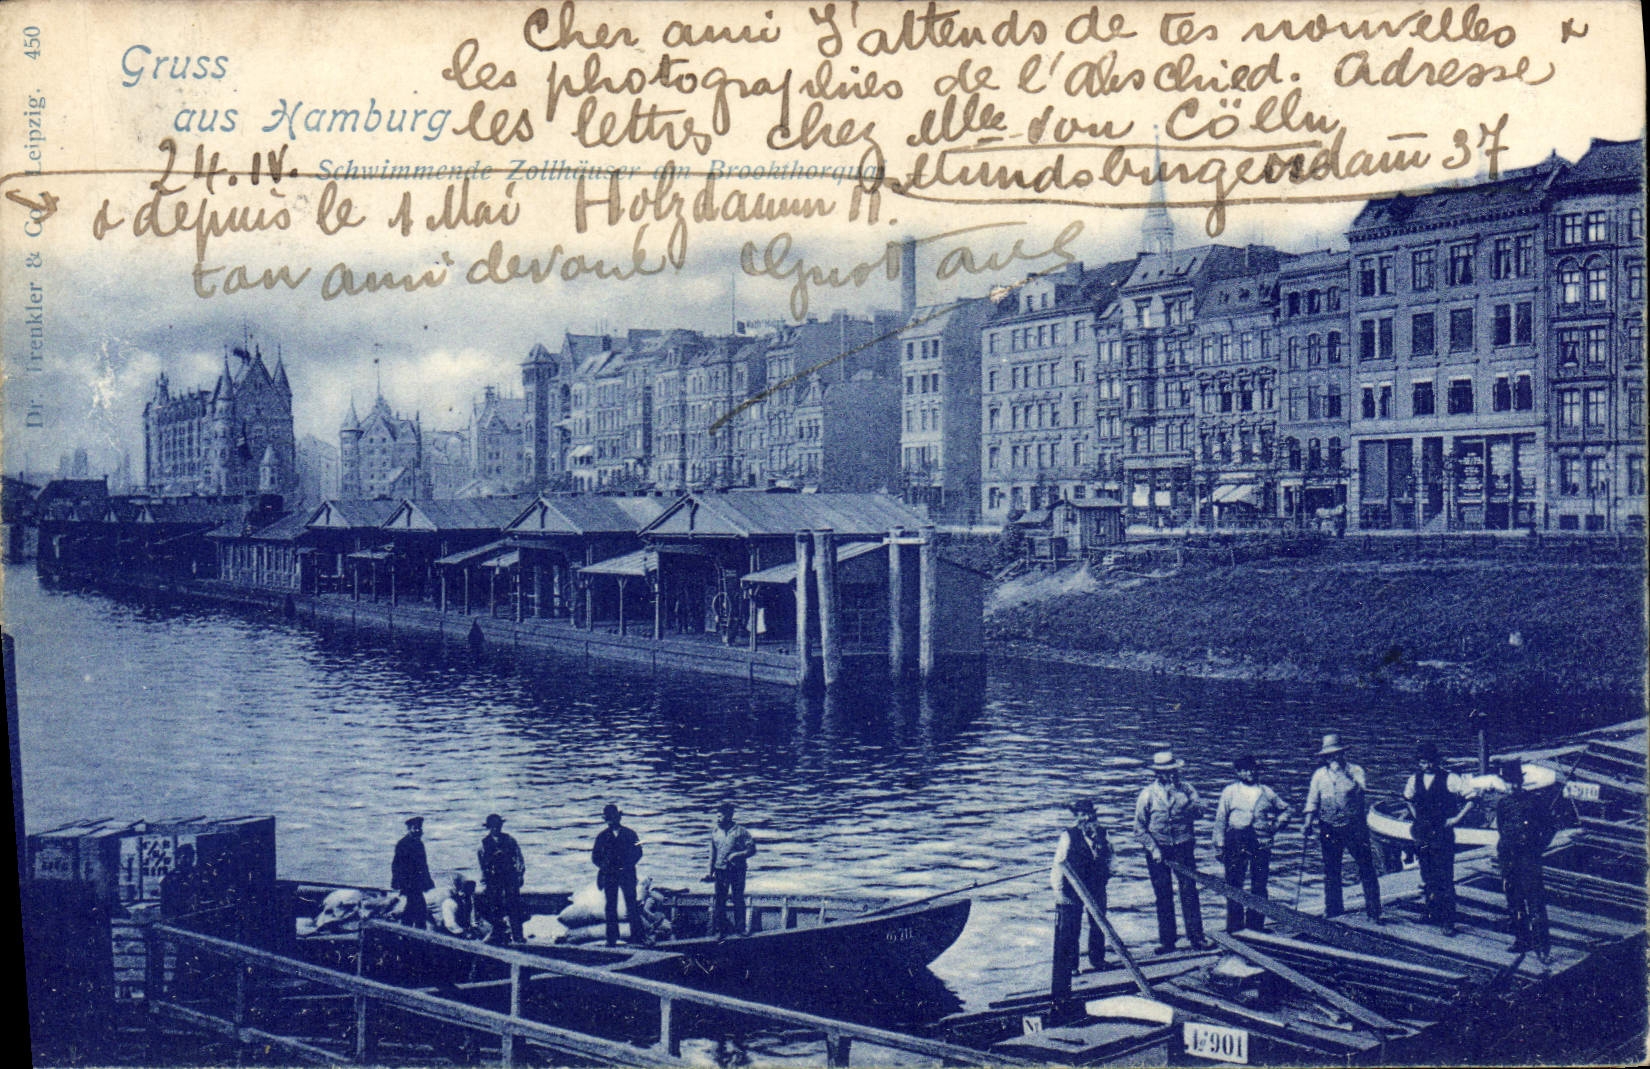 Cher ami J'attends de tes nouvelles &
les photographies de l'Abschied. Adresse
les lettres chez Mlle von Cölln
Mundsburgerdam 37
24.IV.
& depuis le 1 Mai Holzdamm 11.
ton ami dévoué Gustave
Gruss
aus Hamburg
Schwimmende Zollhäuser am Brookthorquai
Dr. Trenkler & Co. Leipzig. 450
No 901